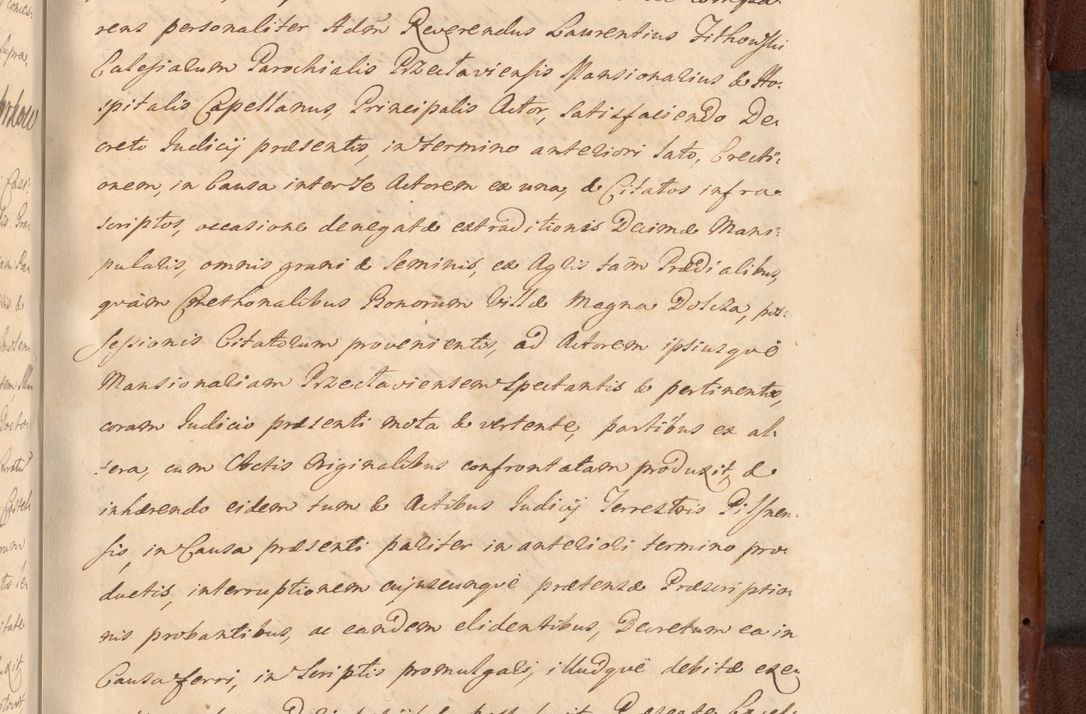 rens personaliter Adm̃ Reverendus Laurentius Zithowski
Ecclesiarum Parochialis Przeclaviensis Mansionarius & Ho-
spitalis Capellanus, Principalis Actor, satisfaciendo De-
creto Iudicij præsentis, in termino anteriori lato, Erecti-
onem, in Causa inter se Actorem ex una, & Citatos infra-
scriptos, occasione denegatæ extraditionis Decimæ Mani-
pularis, omnis grani & seminis, ex Agris tàm Prædialibus,
quàm Cmethonalibus Bonorum Villæ Magna Dolcza, pos-
sessionis Citatorum provenientis, ad Actorem ipsiusquè
Mansionariam Przeclaviensem spectantis & pertinentis,
coram Iudicio præsenti mota & vertente, partibus ex al-
tera, cum Actis Originalibus confrontatam produxit, &
inhærendo eidem tum & Actibus Iudicij Terrestris Pilsnen-
sis, in Causa præsenti pariter in anteriori termino pro-
ductis, interruptionem cujuscunquè prætensæ Præscriptio-
nis probantibus, ac eandem elidentibus, Decretum ea in
Causa ferri, in Scriptis promulgari, illudquè debitæ exeu